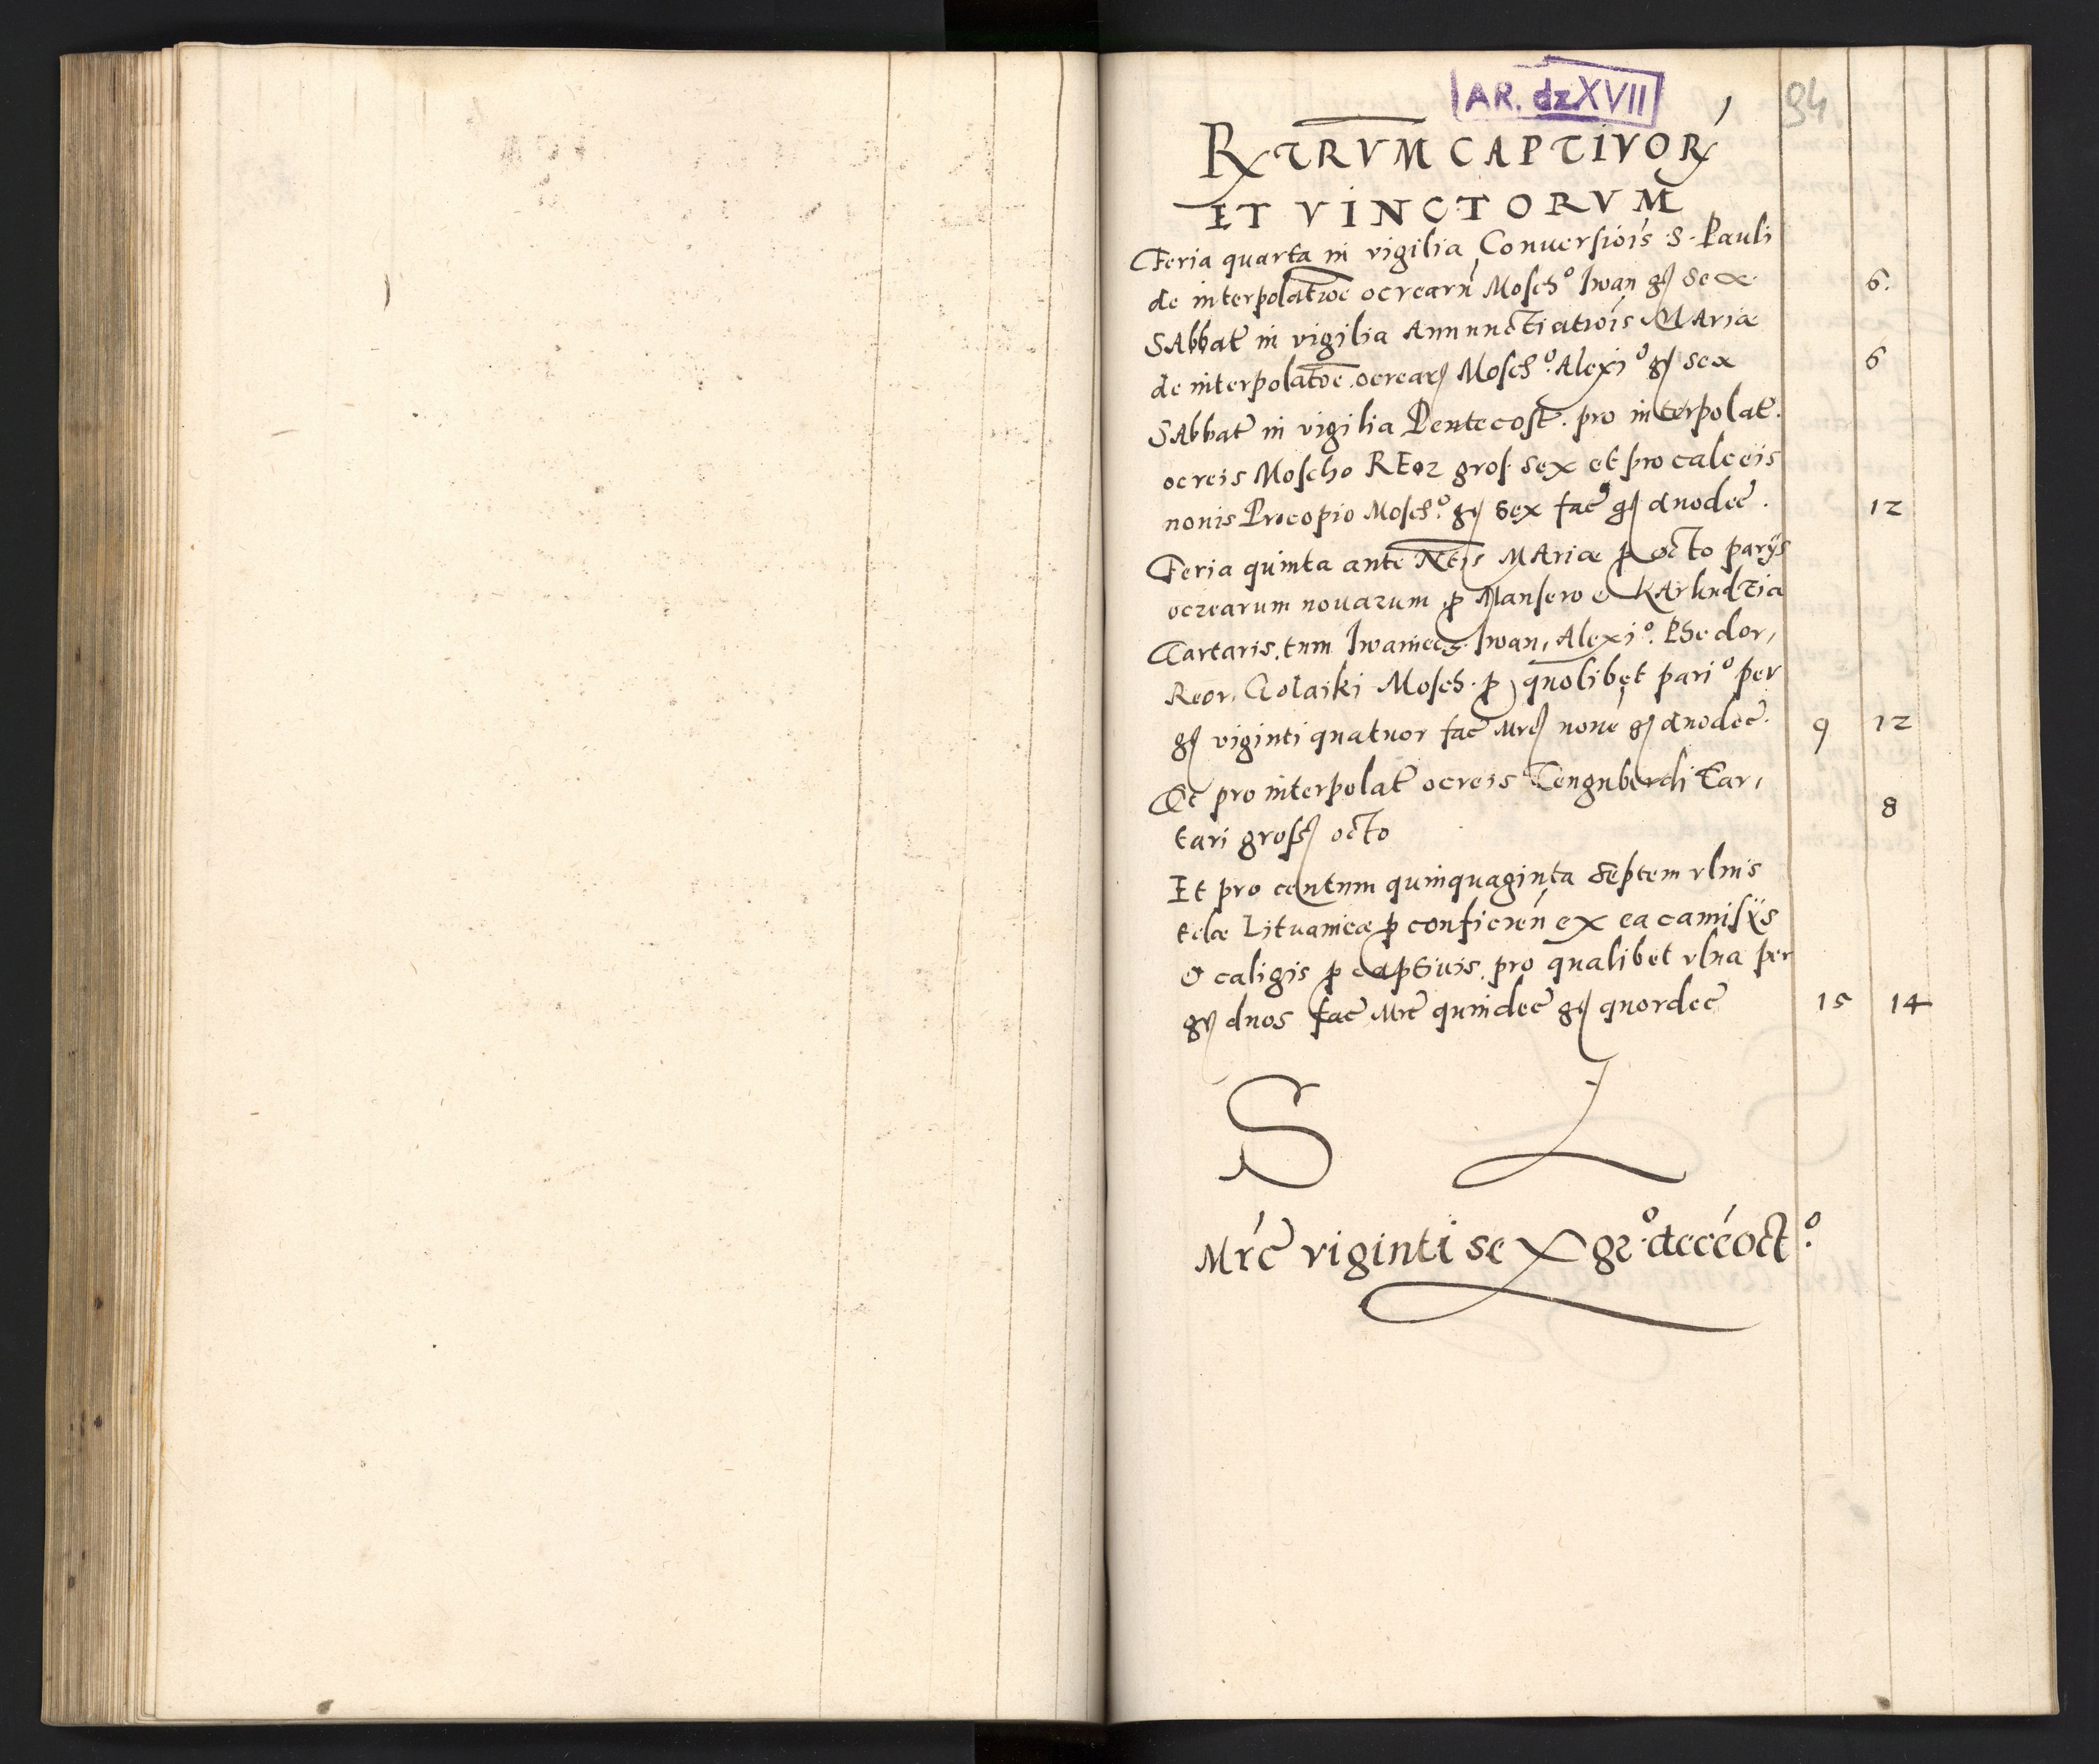 AR. dz XVII
94
RXTRVM CAPTIVOR
ET VINCTORVM
Feria quarta in vigilia Conuersiois S. Pauli
de interpolatioe ocrearu Moschº Iwan gs sex 6.
SAbbat in vigilia Annunctiatiois MAriæ
de interpolatoe ocrear Moschº Alexiº gs sex 6
SAbbat in vigilia Pentecost. pro interpolat.
ocreis Moscho REor gros. sex et pro calceis
nonis Procopio Moschº. gs sex fac gs duodec. 12
Feria quinta ante Ntis MAriæ p octo parijs
ocrearum nouarum p Mansero e
Tartaris, tum Iwaniecz Iwan, Alexiº. Phedor,
Reor, Mosch. p quolibet pariº per
gs viginti quatuor fac Mrc none gs duodec. 9 12
Et pro interpolat ocreis Tengnberdi Tar,
tari gross octo 8
Et pro centum quinquaginta septem vlnis
telæ Lituanicæ p conficien ex ea camisijs
& caligis p captiuis, pro qualibet vlna per
gs duos fac Mrc quindec gs quordec 15 14
S
Mrc viginti sex grº. deceoctº.